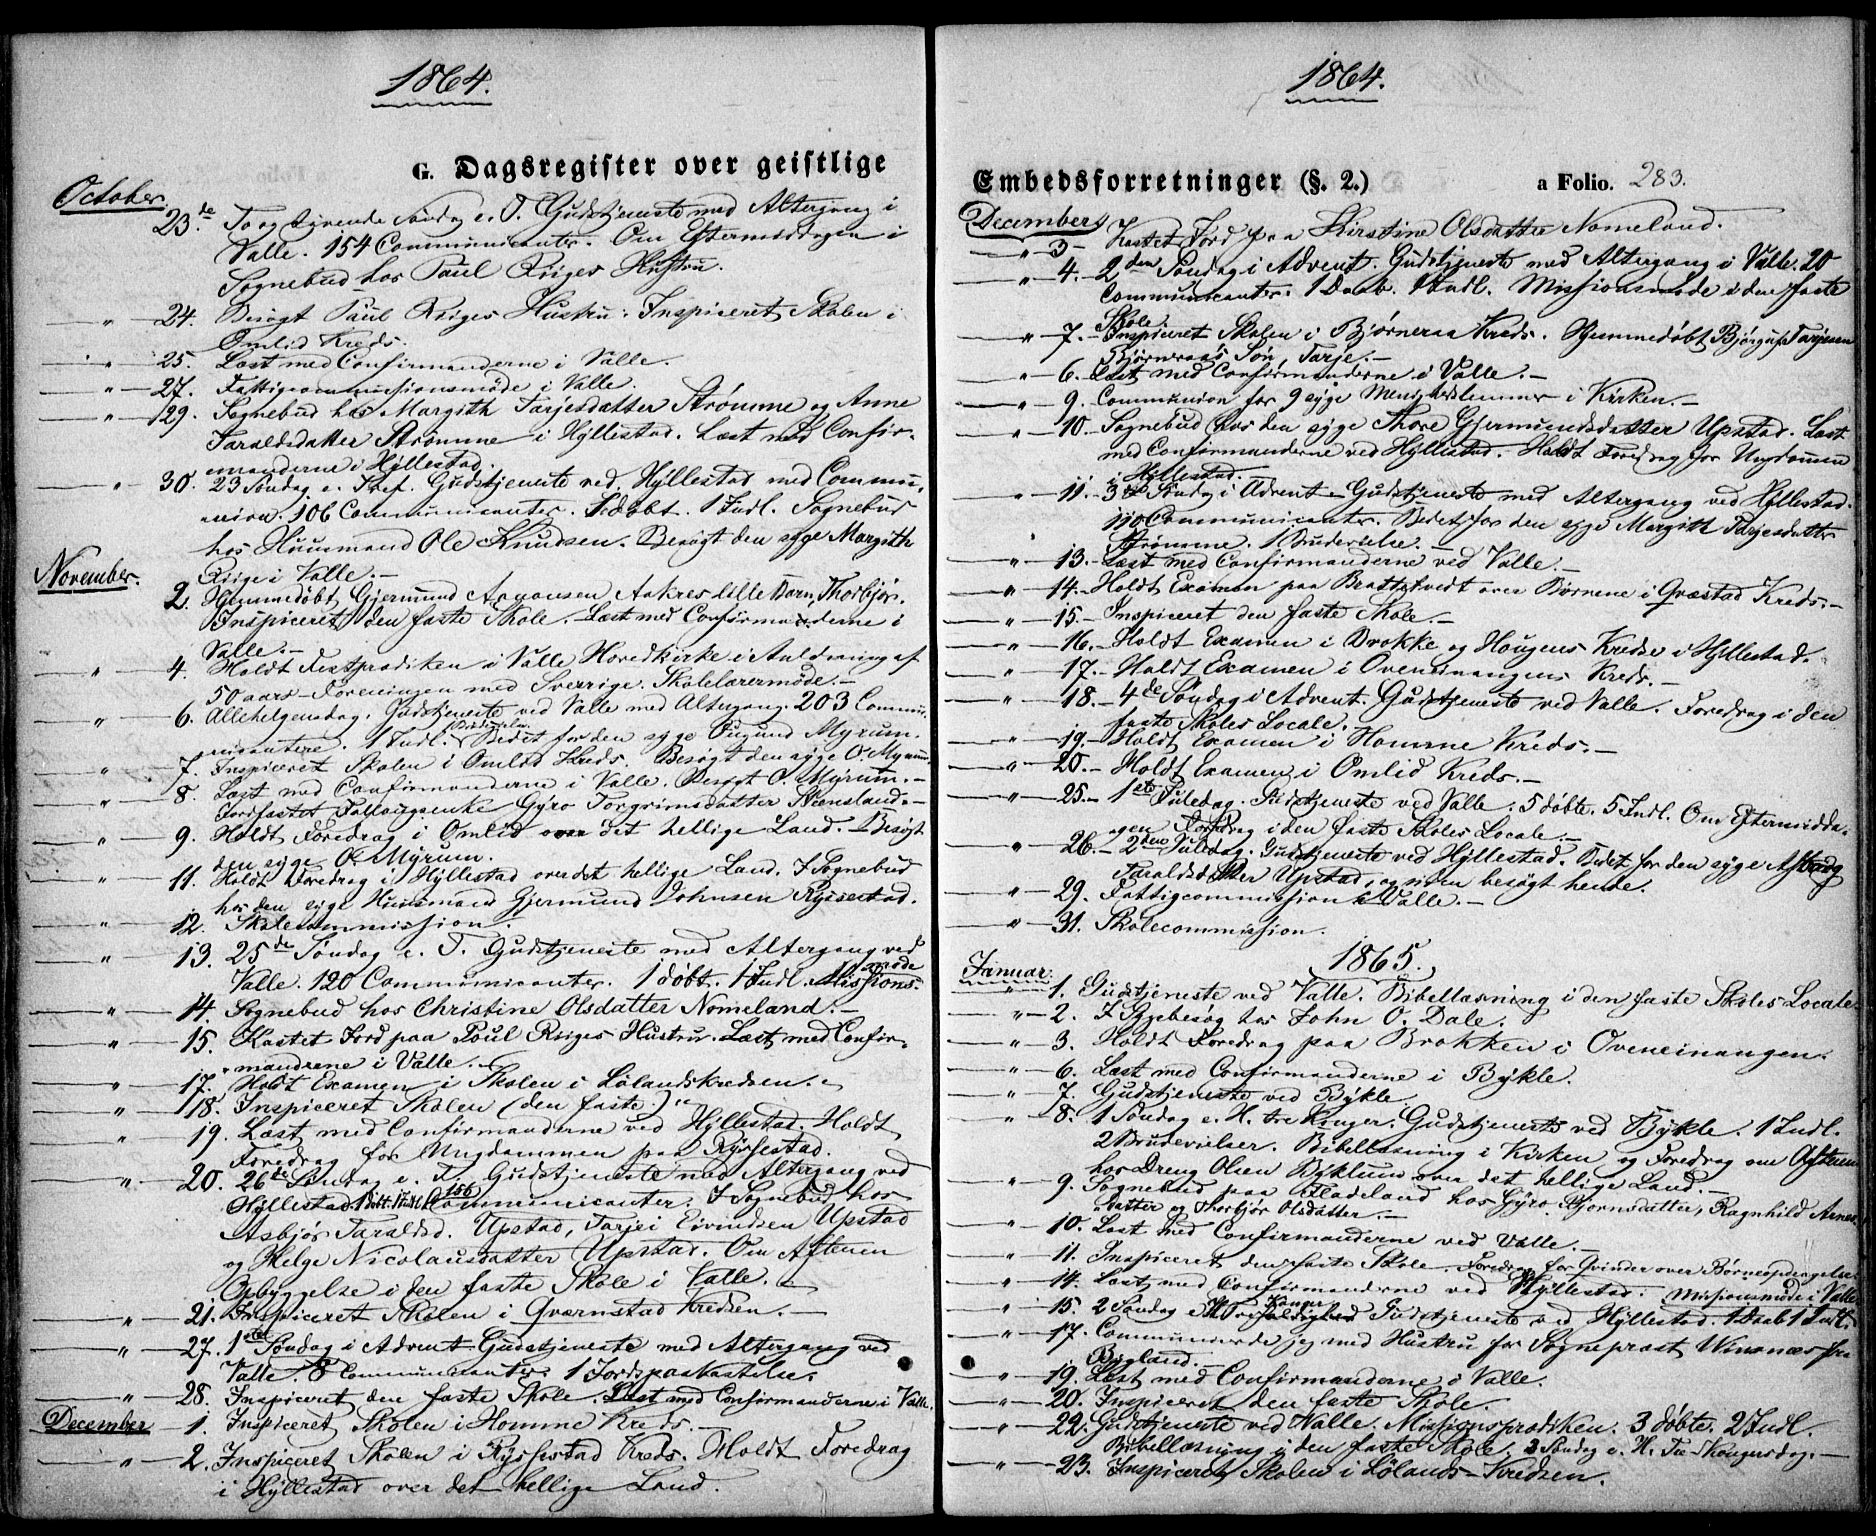 1864.
G. Dagsregister over geistlige
October.
23de To og tyvende Søndag e. T. Gudstjeneste med Altergang i
Valle. 154 Communicanter. Om Eftermiddagen i
Sognebud hos Paul Riiges Hustru.
" 24. Besøgt Paul Riiges Hustru. Inspiceret Skolen i
Omlid Kreds.
" 25. Læst med Confirmanderne i Valle.
" 27. Fattigcommissionsmöde i Valle.
" 29. Sognebud hos Margith Tarjesdatter Strømme og Anne
Taraldsdatter Strømme i Hyllestad. Læst med Confir-
manderne i Hyllestad.
" 30. 23 Søndag e. Tref. Gudstjeneste ved Hyllestad med Commu-
nion. 106 Communicanter. 1 døbt. 1 Indl. Sognebud
hos Huusmand Ole Knudsen. Besøgt den syge Margith
Riige i Valle.
November.
2. Hjemmedøbt Gjermund Aanonsen Aakres lille Barn, Thorbjør.
Inspiceret den faste Skole. Læst med Confirmanderne i
Valle.
" 4. Holdt Festprædiken i Valle Hovedkirke i Anledning af
50 aars-Foreningen med Sverrige. Skolelærermøde.
" 6. Allehelgensdag. Gudstjeneste ved Valle med Altergang. 203 Commu-
nicantere. 1 Indl. Bedet for den syge Øugund Myrum.
" 7. Inspiceret Skolen i Omlid Kreds. Besøgt den syge O. Myrum.
" 8. Læst med Confirmanderne i Valle. Besøgt O. Myrum.
Jordfæstet Gyro Torgrimsdatter
" 9. Holdt Foredrag i Omlid over det hellige Land. Besøgt
den syge O. Myrum.
" 11. Holdt Foredrag i Hyllestad over det hellige Land. I Sognebud
hos den syge Huusmand Gjermund Johnsen Ryssestad.
" 12. Skolecommission.
" 13. 25de Søndag e. T. Gudstjeneste med Altergang ved
Valle. 120 Communicanter. 1 døbt. 1 Indl. Missionsmøde
" 14. Sognebud hos Christine Olsdatter Nomeland.
" 15. Kastet Jord paa Poul Riiges Hustru. Læst med Confir-
manderne i Valle.
" 17. Holdt Examen i Skolen i Lølandskredsen.
" 18. Inspiceret Skolen (den faste).
" 19. Læst med Confirmanderne ved Hyllestad. Holdt
Foredrag for Ungdommen paa Ryssestad.
" 20. 26de Søndag e. T. Gudstjeneste med Altergang ved
Hyllestad. 1 døbt. 1 Indl. 156 Communicanter. I Sognebud hos
Asbjør Taraldsd. Upstad, Tarjei Eivindsen Upstad
og Helge Nicolausdatter Upstad. Om Aftenen
Opbyggelse i den faste Skole i Valle.
" 21. Inspiceret Skolen i Qværnstad Kredsen.
" 27. 1ste Søndag i Advent. Gudstjeneste med Altergang ved
Valle. 8 Communicanter. 1 Jordspaakastelse.
" 28. Inspiceret den faste Skole. Læst med Confirmanderne i Valle.
December
1. Inspiceret Skolen i Homme Kreds.
" 2. Inspiceret Skolen i Ryssestad Kreds. Holdt Foredrag
i Hyllestad over det hellige Land.
1864.
Embedsforretninger (§. 2.) a Folio. 283.
December
" 3 Kastet Jord paa Kirstine Olsdatter Nomeland.
" 4. 2den Søndag i Advent. Gudstjeneste med Altergang i Valle. 20
Communicanter. 1 Daab. 1 Indl. Missionsmøde i den faste
Skole
" 7. Inspiceret Skolen i Bjørneraa Kreds. Hjemmedøbt Bjørguf Tarjesen
Bjørneraas Søn, Tarje.
" 6. Læst med Confirmanderne i Valle.
" 9. Communion for 9 syge Menighedslemmer i Kirken.
" 10. Sognebud hos den syge Thore Gjermundsdatter Upstad. Læst
med Confirmanderne ved Hyllestad. Holdt Foredrag for Ungdommen
i Hyllestad.
" 11. 3die Søndag i Advent. Gudstjeneste med Altergang ved Hyllestad.
110 Communicanter. Bedet for den syge Margith Tarjesdatter
Strømme. 1 Brudevielse.
" 13. Læst med Confirmanderne ved Valle.
" 14. Holdt Examen paa Brottetvedt over Børnene i Qvæstad Kreds.
" 15. Inspiceret den faste Skole.
" 16. Holdt Examen i Brokke og Hougens Kredse i Hyllestad.
" 17. Holdt Examen i Oveneinangens Kreds.
" 18. 4de Søndag i Advent. Gudstjeneste ved Valle. Foredrag i den
faste Skoles Locale.
" 19. Holdt Examen i Homme Kreds.
" 20. Holdt Examen i Omlid Kreds.
" 25. 1ste Juledag. Gudstjeneste ved Valle. 5 døbte. 5 Indl. Om Eftermidda-
gen Foredrag i den faste Skoles Locale.
" 26. 2den Juledag. Gudstjeneste ved Hyllestad. Bedet for den syge Asbjørg
Taraldsdatter Upstad, og siden besøgt hende.
" 29. Fattigcommission i Valle.
" 31. Skolecommission.
1865.
Januar.
" 1. Gudstjeneste ved Valle. Bibellæsning i den faste Skoles Locale
" 2. I Sygebesøg hos John O. Dale.
" 3. Holdt Foredrag paa Brokken i Oveneinangen.
" 6. Læst med Confirmanderne i Bykle.
" 7. Gudstjeneste ved Bykle.
" 8. 1 Søndag e. H. tre Konger. Gudstjeneste ved Bykle. 1 Indl.
2 Brudevielser. Bibellæsning i Kirken og Foredrag om Aftenen
hos Dreng Olsen Byklum over det hellige Land.
" 9. Sognebud paa Fladeland hos Gyro Bjørnsdatter, Ragnhild Arnes-
datter og Thorbjør Olsdatter.
" 10. Læst med Confirmanderne ved Valle.
" 11. Inspiceret den faste Skole. Foredrag for Qvinder over Børneopdragelse
" 14. Læst med Confirmanderne ved Hyllestad. Missionsmøde i Valle
" 15. 2 Søndag e. H. Tre Konger Gudstjeneste ved Hyllestad. 1 Daab 1 Indl.
" 17. Communicerede jeg med Hustru for Sogneprest Winsnæs fra
Bygland.
" 19. Læst med Confirmanderne i Valle.
" 20. Inspiceret den faste Skole.
" 22. Gudstjeneste ved Valle. Missionsprædiken. 3 døbte. 2 Indl.
Bibellæsning i den faste Skole. 3 Søndag e. H. Tre Kongersdag.
" 23. Inspiceret Skolen i Lølands-Kredsen.